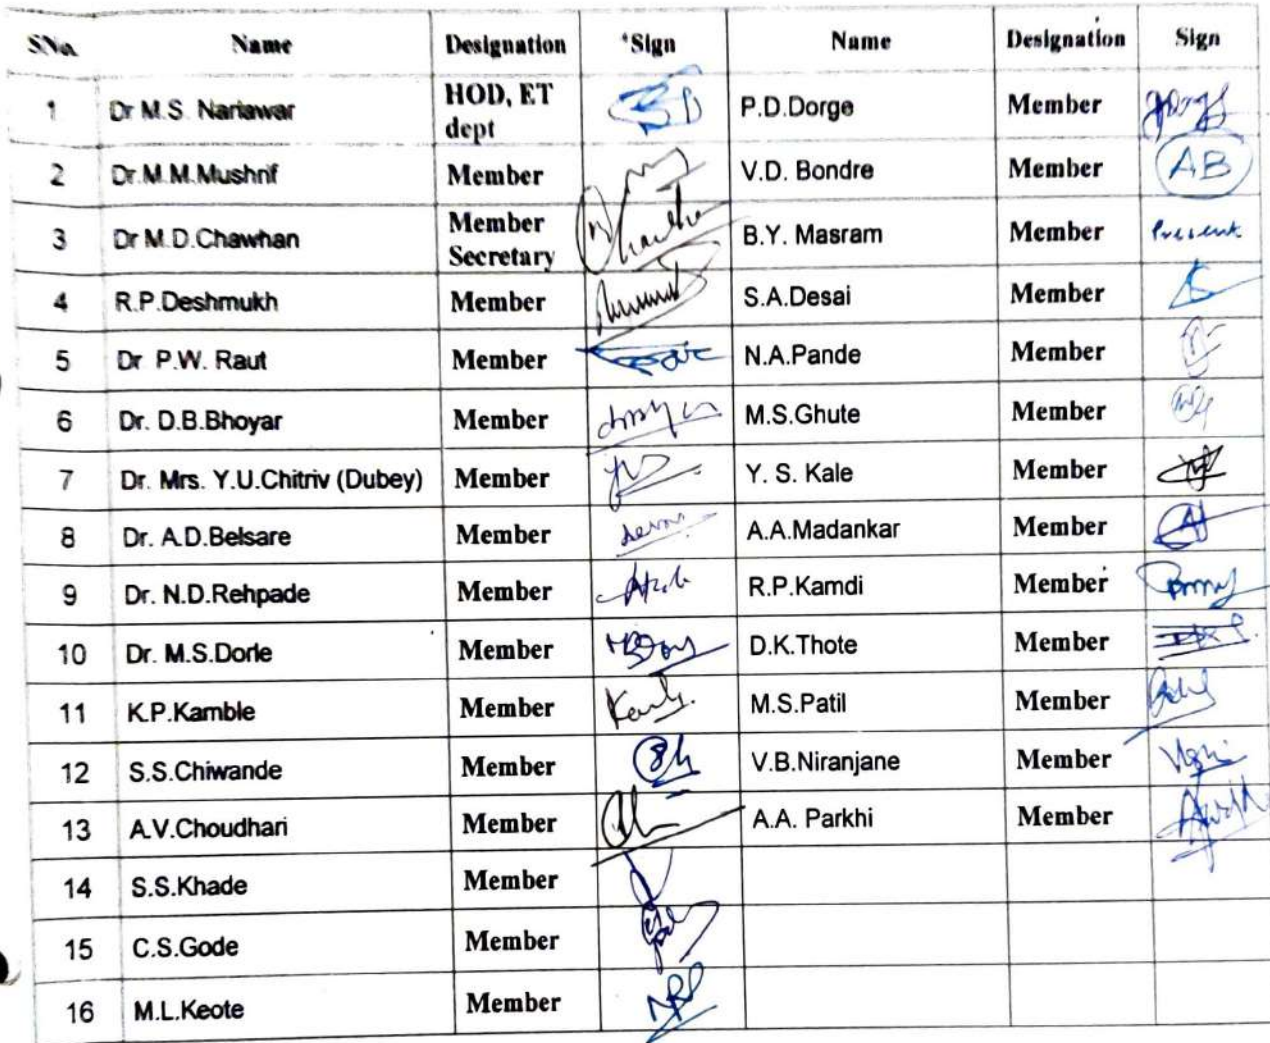 SNo. Name Designation *Sign Name Designation Sign
1 Dr M.S. Nariawar HOD, ET P.D.Dorge Member
dept
2 Dr.M.M.Mushrif Member V.D. Bondre Member AB
3 Dr M.D.Chawhan Member B.Y. Masram Member Present
Secretary
4 R.P.Deshmukh Member S.A.Desai Member
5 Dr P.W. Raut Member N.A.Pande Member
6 Dr. D.B.Bhoyar Member M.S.Ghute Member
7 Dr. Mrs. Y.U.Chitriv (Dubey) Member Y. S. Kale Member
8 Dr. A.D.Belsare Member A.A.Madankar Member
9 Dr. N.D.Rehpade Member R.P.Kamdi Member
10 Dr. M.S.Dorle Member D.K.Thote Member
11 K.P.Kamble Member M.S.Patil Member
12 S.S.Chiwande Member V.B.Niranjane Member
13 A.V.Choudhari Member A.A. Parkhi Member
14 S.S.Khade Member
15 C.S.Gode Member
16 M.L.Keote Member